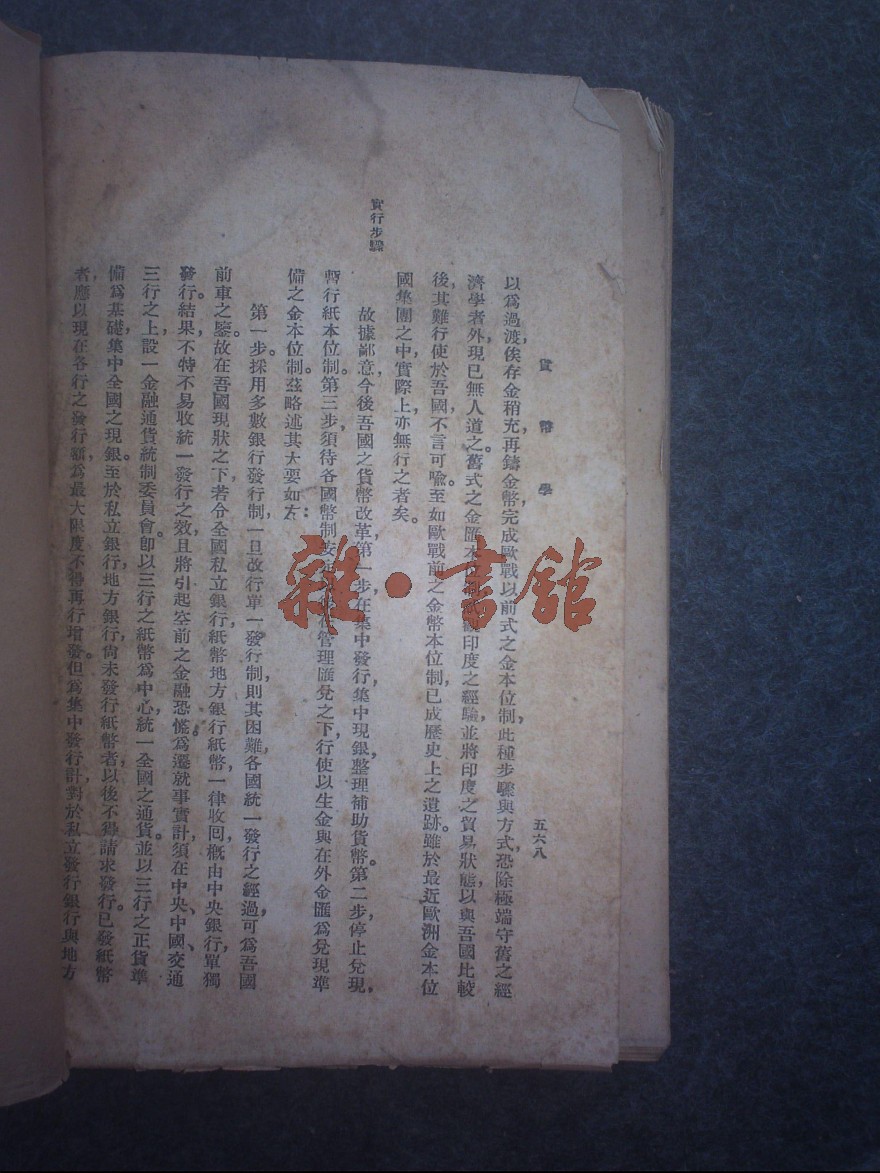 貨幣學
五六八
以爲過渡，俟存金稍充，再鑄金幣，完成歐戰以前式之金本位制，此種步驟與方式，恐除極端守舊之經
濟學者外，現已無人道之。舊式之金匯本位制試觀印度之經驗，並將印度之貿易狀態，以與吾國比較
後，其難行使於吾國，不言可喩。至如歐戰前之金幣本位制，已成歷史上之遺跡。雖於最近歐洲金本位
國集團之中，實際上，亦無行之者矣。
實行步驟
故據鄙意，今後吾國之貨幣改革，第一步，在集中發行，集中現銀，整理補助貨幣。第二步，停止兌現，
暫行紙本位制。第三步，須待各國幣制安定管理匯兌之下，行使以生金與在外金匯爲兌現準
備之金本位制。茲略述其大要如左：
第一步，採用多數銀行發行制，一旦改行單一發行制，則其困難，各國統一發行之經過，可爲吾國
前車之鑒。故在吾國現狀之下，若令全國私立銀行紙幣，地方銀行紙幣，一律收回，槪由中央銀行，單獨
發行。結果，不特不易收統一發行之效，且將引起空前之金融恐慌。爲遷就事實計，須在中央、中國、交通
三行之上，設一金融通貨統制委員會。卽以三行之紙幣爲中心，統一全國之通貨。並以三行之正貨準
備爲基礎，集中全國之現銀。至於私立銀行，地方銀行，尙未發行紙幣者，以後不得請求發行。已發紙幣
者，應以現在各行之發行額，爲最大限度，不得再行增發。但爲集中發行計，對於私立發行銀行與地方
雜·書館